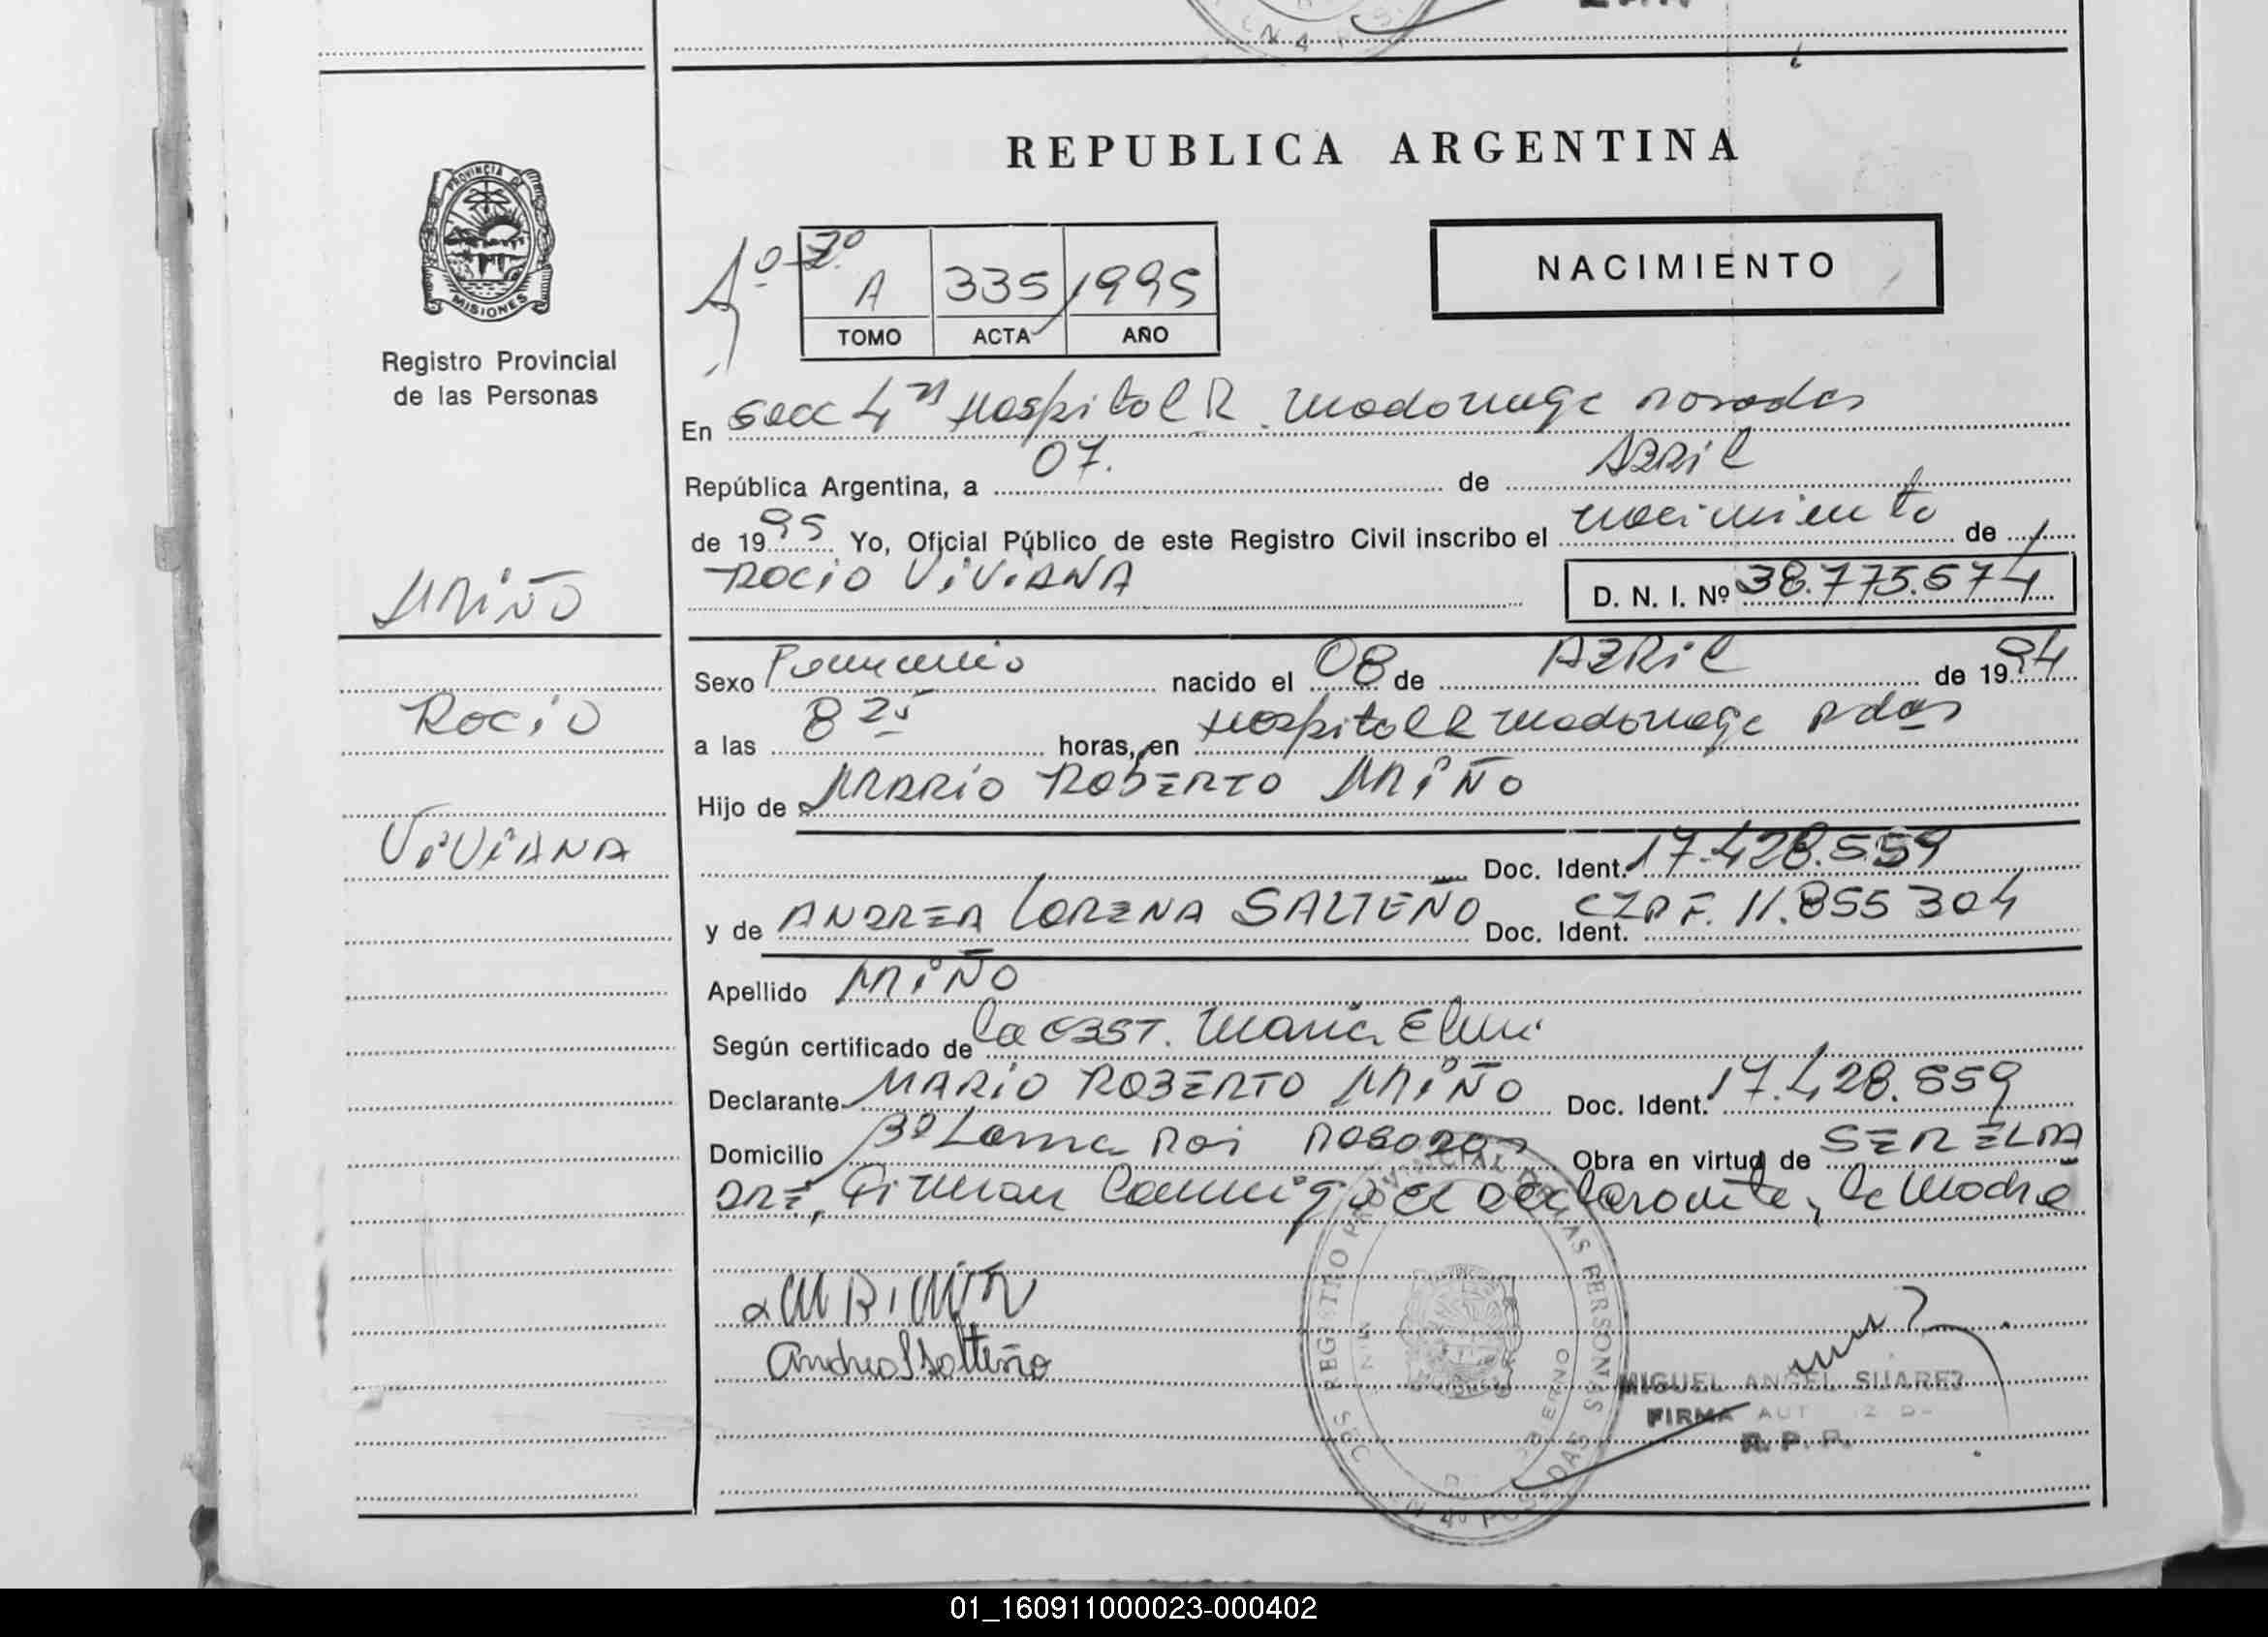 REPUBLICA ARGENTINA
PROVINCIA DE
MISIONES
Registro Provincial
de las Personas
NACIMIENTO
Aº 2º
A 335 1995
TOMO ACTA AÑO
En Secc 4ta Hospital R. Madariaga Posadas
República Argentina, a 07. de ABRIL
de 1995 Yo, Oficial Público de este Registro Civil inscribo el nacimiento de
ROCIO VIVIANA D. N. I. Nº 38.775.674
MIÑO
ROCIO
VIVIANA
Sexo Femenino nacido el 08 de ABRIL de 1994
a las 8 25 horas, en Hospital R Madariaga Pdas
Hijo de MARIO ROBERTO MIÑO
Doc. Ident. 17.428.559
y de ANDREA LORENA SALTEÑO Doc. Ident. CIPF. 11.855304
Apellido MIÑO
Según certificado de la OBST. Maria
Declarante MARIO ROBERTO MIÑO Doc. Ident. 17.428.559
Domicilio Bº Loma Poi POSADAS Obra en virtud de SER EL PA
DRE, Firman conmigo el declarante, la Madre
Andrea L Salteño
REGISTRO PROVINCIAL DE LAS PERSONAS
MIGUEL ANGEL SUAREZ
FIRMA AUT
R. P. P.
01_160911000023-000402